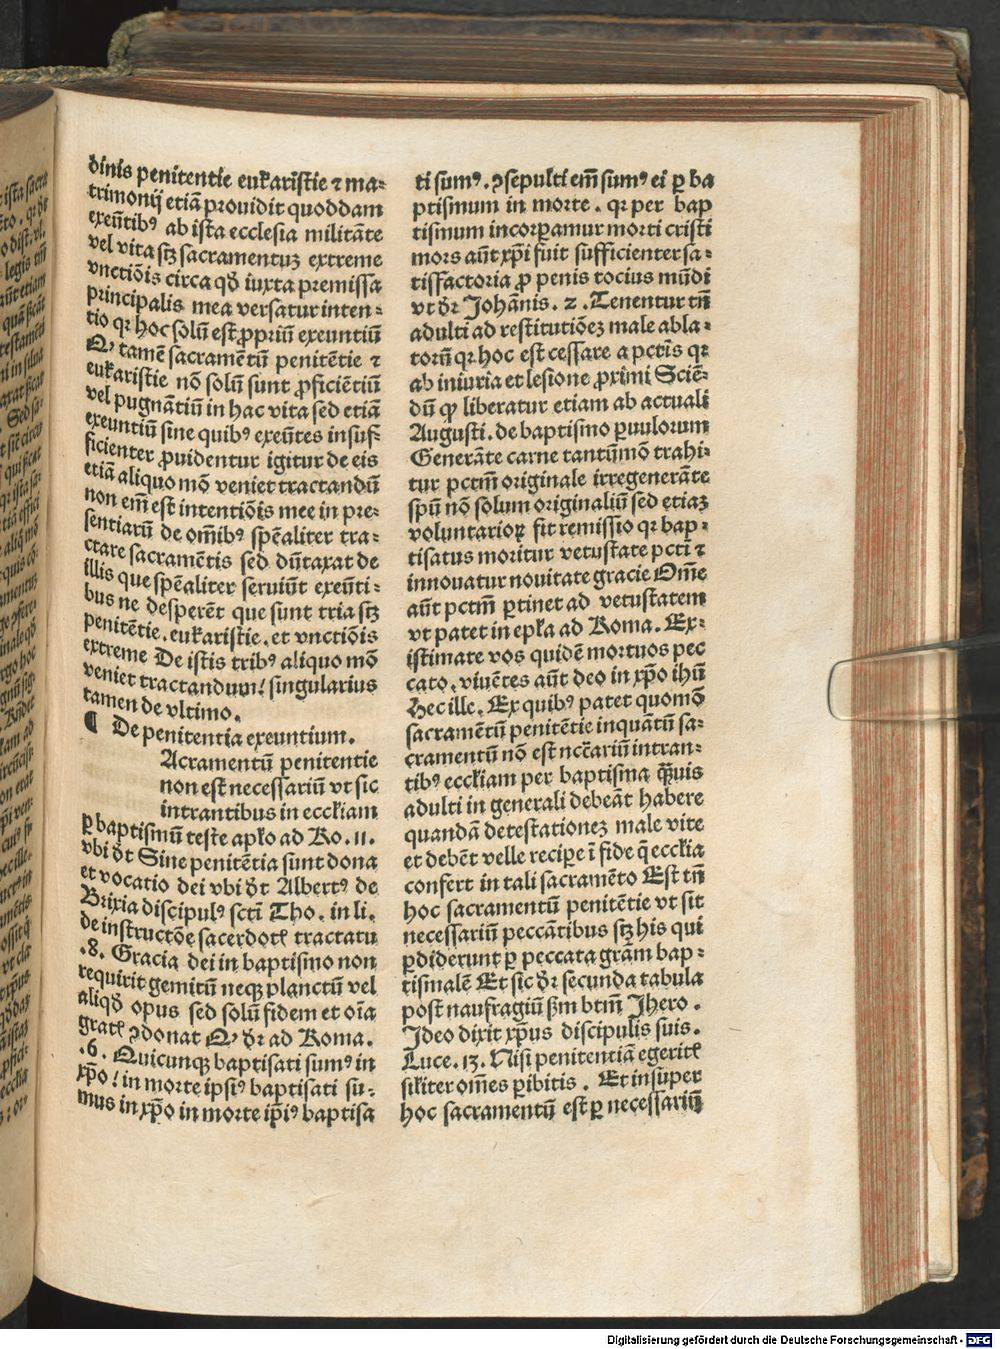 dinis penitentie eukaristie ⁊ ma⸗
trimonij etiā ꝓuidit quoddam
exeūtibꝰ ab ista ecclesia militāte
vel vita stꝫ sacramentuꝫ extreme
vnctiōis circa qđ iuxta premissa
principalis mea versatur inten⸗
tio qꝛ hoc solū est ꝓpriū exeuntiū
Qꝛ tamē sacramētū penitētie ⁊
eukaristie nō solū sunt ꝓficiētiū
vel pugnātiū in hac vita sed etiā
exeuntiū sine quibꝰ exeūtes insuf⸗
ficienter ꝓuidentur igitur de eis
etiā aliquo mō veniet tractandū
non em̄ est intentiōis mee in pre⸗
sentiarū de om̄ibꝰ spēaliter tra⸗
ctare sacramētis sed dūtaxat de
illis que spēaliter seruiūt exeūti⸗
bus ne desperēt que sunt tria stꝫ
penitētie. eukaristie. et vnctiōis
extreme De istis tribꝰ aliquo mō
veniet tractandum/ singularius
tamen de vltimo.
¶ De penitentia exeuntium.
Acramentū penitentie
non est necessariū vt sic
intrantibus in eccłiam
ꝑ baptismū teste apło ad Ro. 11.
vbi dꝛ̄ Sine penitētia sunt dona
et vocatio dei vbi dꝛ̄ Albertꝰ de
Brixia discipulꝰ sctī Tho. in li.
de instructōe sacerdotꝭ tractatu
.8. Gracia dei in baptismo non
requirit gemitū neqꝫ planctū vel
aliqđ opus sed solū fidem et oīa
gratꝭ ꝯdonat Qꝛ dꝛ̄ ad Roma.
.6. Quicunqꝫ baptisati sumꝰ in
xp̄o/ in morte ipsiꝰ baptisati su⸗
mus in xp̄o in morte ip̄iꝰ baptisa
ti sumꝰ. ꝯsepulti em̄ sumꝰ ei ꝑ ba
ptismum in morte. qꝛ per bap
tismum incorꝑamur morti cristi
mors aūt xp̄i fuit sufficienter sa⸗
tisfactoria ꝓ penis tocius mūdi
vt dꝛ̄ Johānis. 2. Tenentur tn̄
adulti ad restitutiōeꝫ male abla⸗
torū qꝛ hoc est cessare a pctīs qꝛ
ab iniuria et lesione ꝓximi Sciē⸗
dū ꝙ liberatur etiam ab actuali
Augusti. de baptismo ꝑuulorum
Generāte carne tantūmō trahi⸗
tur pctm̄ originale irregenerāte
spū nō solum originaliū sed etiaꝫ
voluntarioꝝ fit remissio qꝛ bap⸗
tisatus moritur vetustate pcti ⁊
innouatur nouitate gracie Om̄e
aūt pctm̄ ꝑtinet ad vetustatem
vt patet in epła ad Roma. Ex⸗
istimate vos quidē mortuos pec
cato. viuētes aūt deo in xp̄o ihū
Hec ille. Ex quibꝰ patet quomō
sacramētū penitētie inquātū sa⸗
cramentū nō est nccāriū intran⸗
tibꝰ eccłiam per baptisma ꝙ̄uis
adulti in generali debeāt habere
quandā detestationeꝫ male vite
et debēt velle reciꝑe ī fide q̄ eccłia
confert in tali sacramēto Est tn̄
hoc sacramentū penitētie vt sit
necessariū peccātibus stꝫ his qui
ꝑdiderunt ꝑ peccata grām bap⸗
tismalē Et sic dꝛ̄ secunda tabula
post naufragiū ẜm btm̄ Jhero.
Jdeo dixit xp̄us discipulis suis.
Luce. 13. Nisi penitentiā egeritꝭ
siłiter om̄es ꝑibitis. Et insuper
hoc sacramentū est ꝑ necessariū
Digitalisierung gefördert durch die Deutsche Forschungsgemeinschaft - DFG